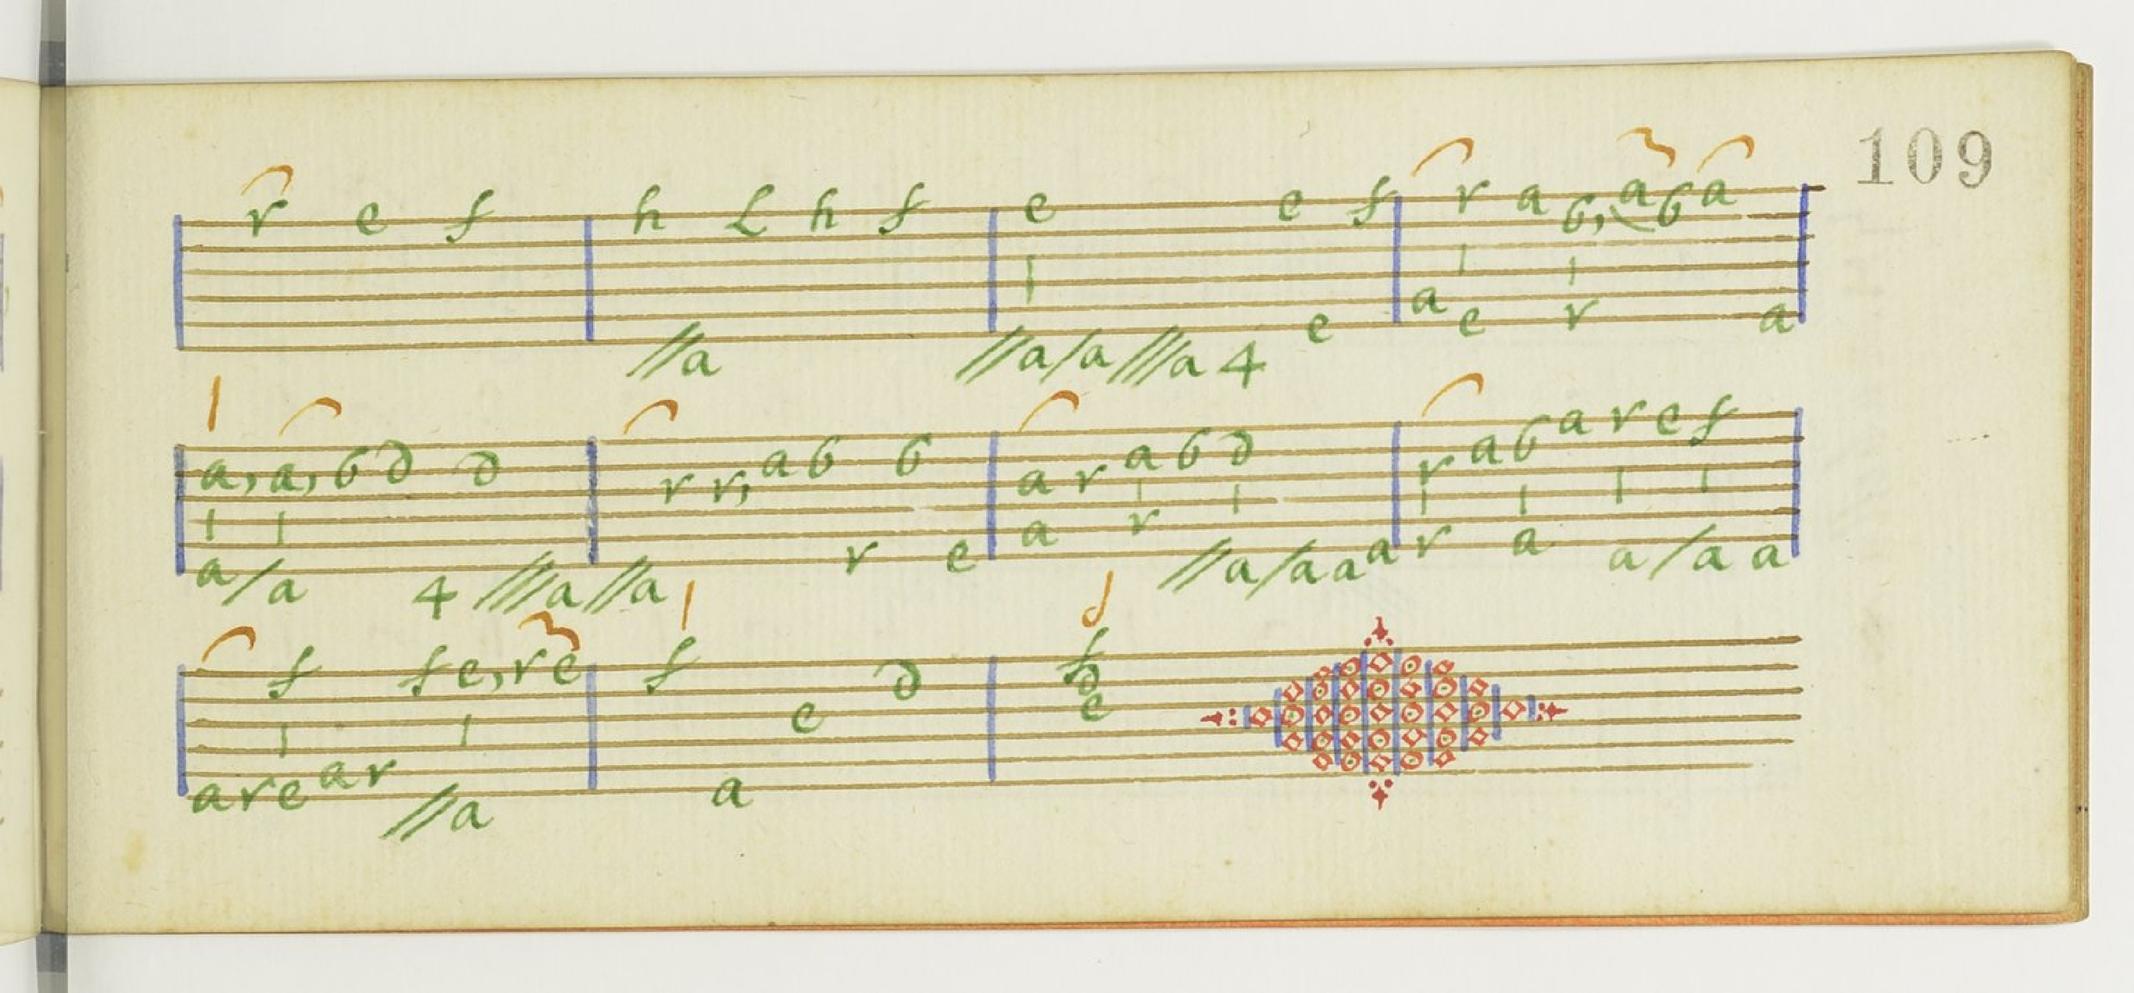 109
r e f h L h f e e f r a b, a b a
//a //a /a ///a 4 e a e r a
a, a, b d d r r, a b b a r a b d r a b a r e f
a /a 4 ///a //a r e a r //a /a a a r a a /a a
f f e, r e f e d f d e
a r e a r //a a